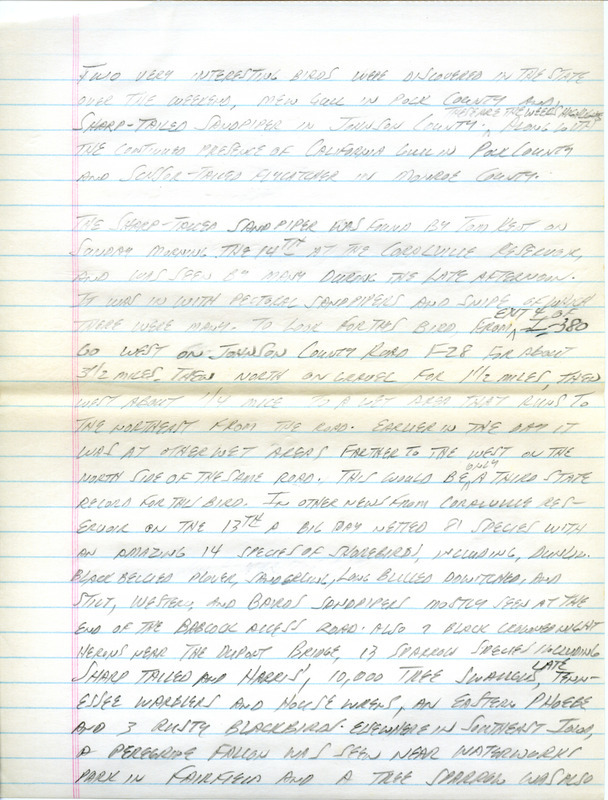 TWO VERY INTERESTING BIRDS WERE DISCOVERED IN THE STATE
OVER THE WEEKEND, MEW GULL IN POLK COUNTY AND
SHARP-TAILED SANDPIPER IN JOHNSON COUNTY. THESE ARE THE WEEKS HIGHLIGHTS ALONG WITH
THE CONTINUED PRESENCE OF CALIFORNIA GULL IN POLK COUNTY
AND SCISSOR-TAILED FLYCATCHER IN MONROE COUNTY.
THE SHARP-TAILED SANDPIPER WAS FOUND BY TOM KENT ON
SUNDAY MORNING THE 14TH AT THE CORALVILLE RESERVOIR,
AND WAS SEEN BY MANY DURING THE LATE AFTERNOON.
IT WAS IN WITH PECTORAL SANDPIPERS AND SNIPE OF WHICH
THERE WERE MANY. TO LOOK FOR THIS BIRD FROM EXIT 4 OF I-380
GO WEST ON JOHNSON COUNTY ROAD F-28 FOR ABOUT
3 1/2 MILES, THEN NORTH ON GRAVEL FOR 1 1/2 MILES, THEN
WEST ABOUT 1/4 MILE TO A WET AREA THAT RUNS TO
THE NORTHEAST FROM THE ROAD. EARLIER IN THE DAY IT
WAS AT OTHER WET AREAS FARTHER TO THE WEST ON THE
NORTH SIDE OF THE SAME ROAD. THIS WOULD BE ONLY A THIRD STATE
RECORD FOR THIS BIRD. IN OTHER NEWS FROM CORALVILLE RES-
ERVOIR ON THE 13TH A BIG DAY NETTED 81 SPECIES WITH
AN AMAZING 14 SPECIES OF SHOREBIRDS, INCLUDING, DUNLIN.
BLACK BELLIED PLOVER, SANDERLING, LONG BILLED DOWITCHER, AND
STILT, WESTERN, AND BAIRDS SANDPIPERS MOSTLY SEEN AT THE
END OF THE BABCOCK ACCESS ROAD. ALSO 7 BLACK CROWNED NIGHT
HERONS NEAR THE DUPONT BRIDGE, 13 SPARROW SPECIES INCLUDING
SHARP TAILED AND HARRIS', 10,000 TREE SWALLOWS, LATE TENN-
ESSEE WARBLERS AND HOUSE WRENS, AN EASTERN PHOEBE
AND 3 RUSTY BLACKBIRDS. ELSEWHERE IN SOUTHEAST IOWA,
A PEREGRINE FALCON WAS SEEN NEAR WATERWORKS
PARK IN FAIRFIELD AND A TREE SPARROW WAS ALSO